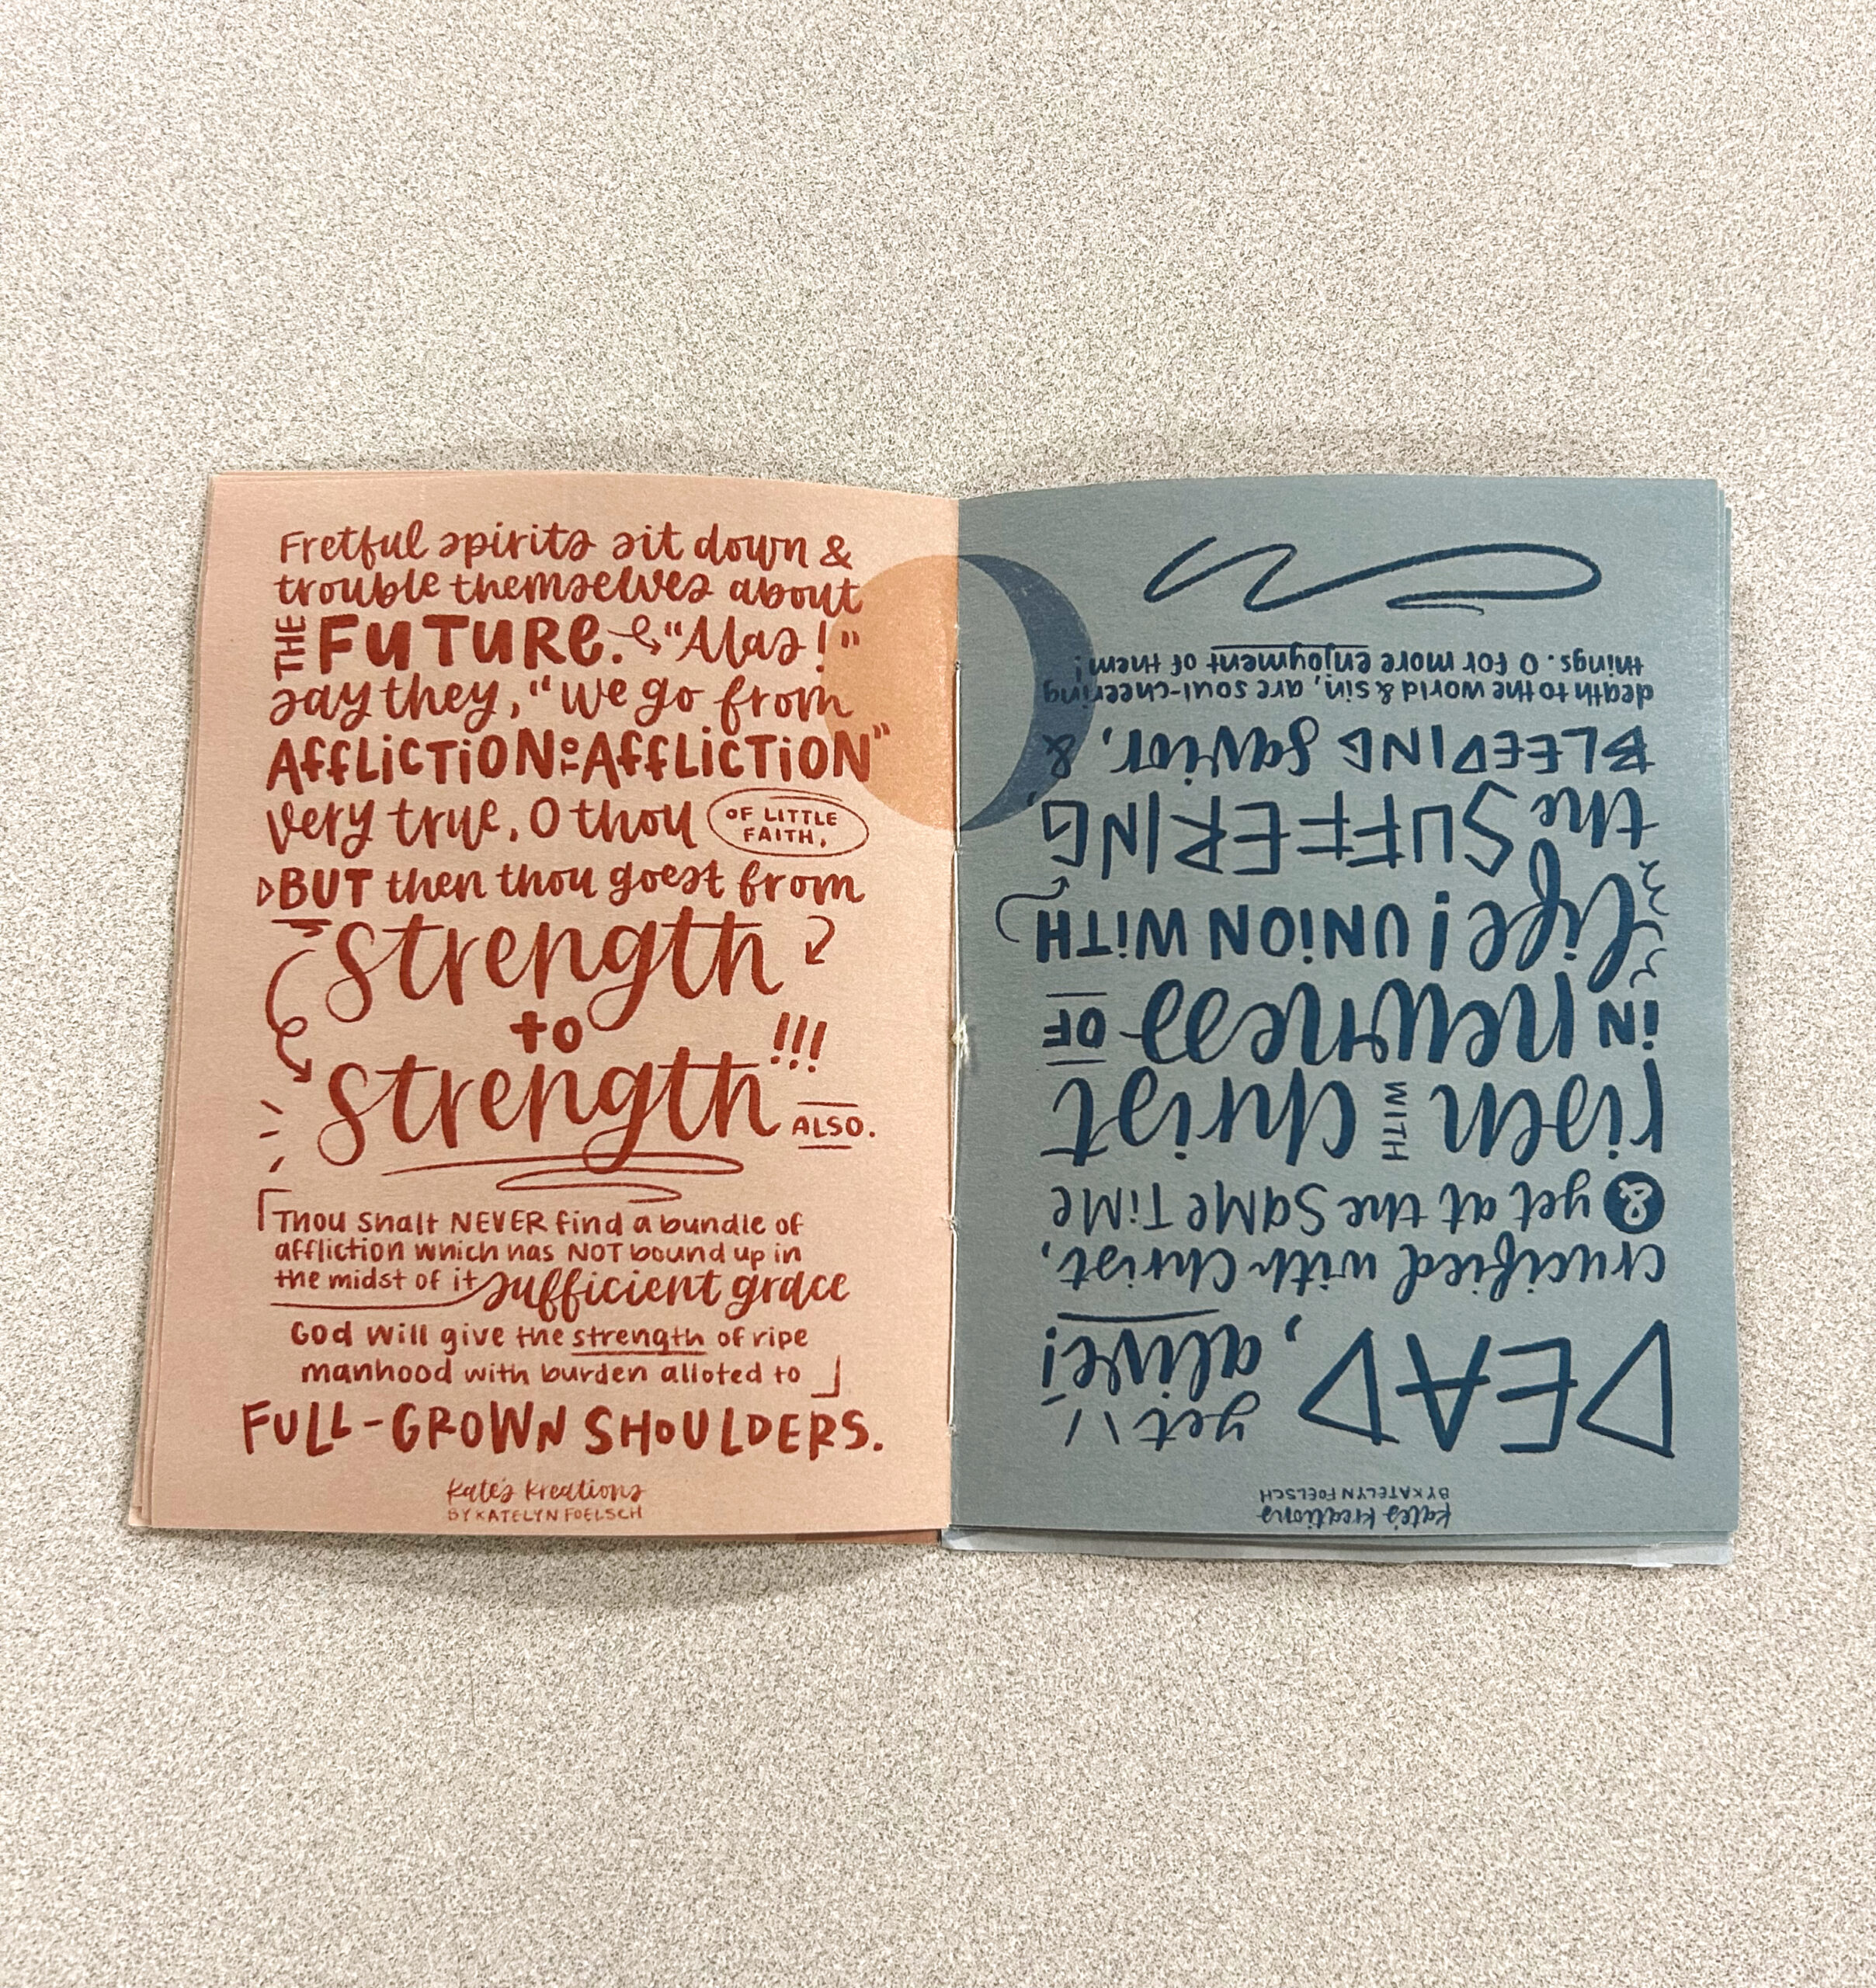 Fretful spirits sit down &
trouble themselves about
THE FUTURE. "Alas!"
say they, "we go from
AFFLICTION TO AFFLICTION"
very true, O thou OF LITTLE FAITH,
BUT then thou goest from
strength
to
strength!!!
ALSO.
Thou shalt NEVER find a bundle of
affliction which has NOT bound up in
the midst of it sufficient grace
God will give the strength of ripe
manhood with burden alloted to
FULL-GROWN SHOULDERS.
Kate's Kreations
BY KATELYN FOELSCH
Kate's Kreations
BY KATELYN FOELSCH
DEAD, yet alive!
crucified with Christ,
& yet at the SAME TIME
risen WITH Christ
IN newness OF
life! UNION WITH
the SUFFERING,
BLEEDING Savior, &
death to the world & sin, are soul-cheering
things. O for more enjoyment of them!